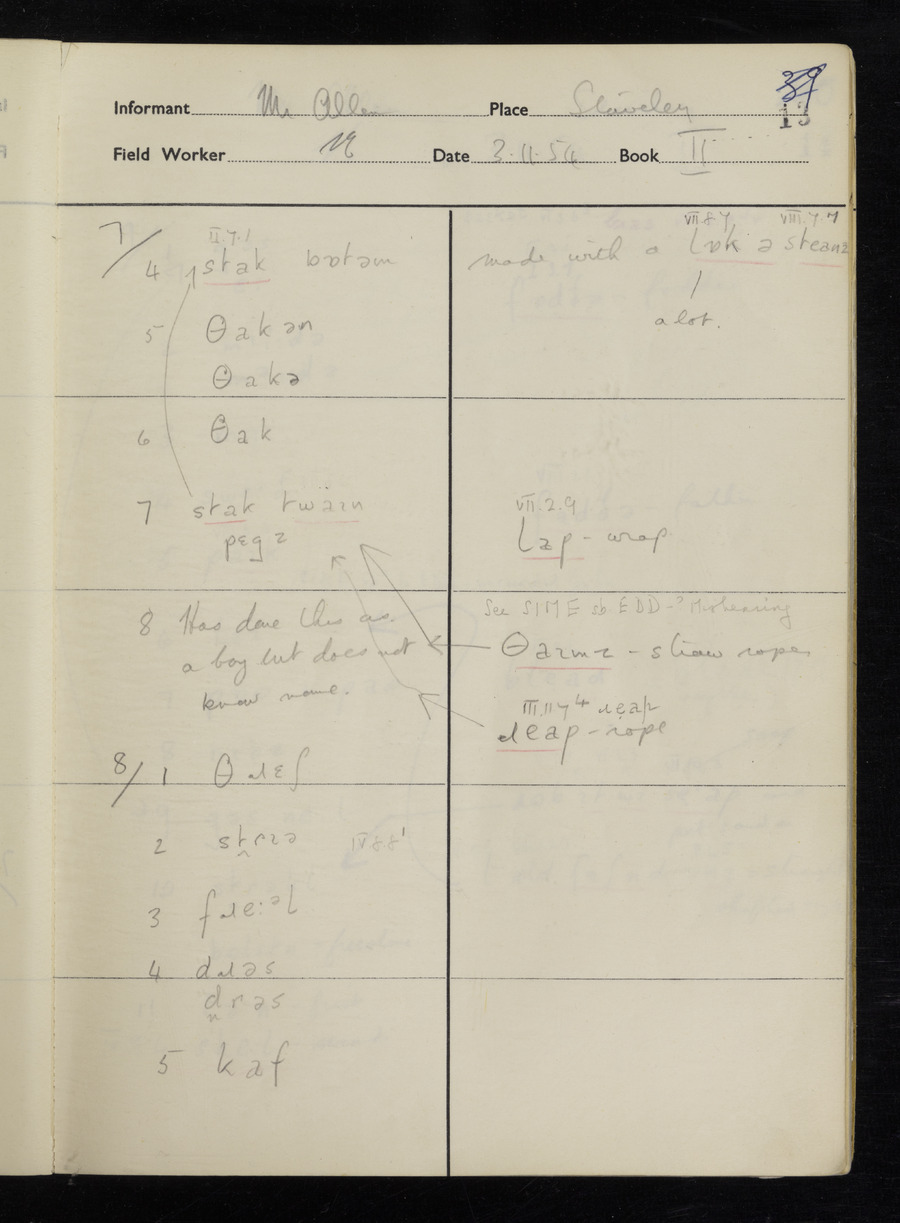 Informant Mr Allen Place Staveley 39
13
Field Worker Date 3.11.54 Book II
II.7.1
7/4 stak bɒtəm
5 θakən
θakə
6 θak
7 stak twaɪn
pɛgz
8 Has done this as
a boy but does not
know name.
8/1 θɹɛʃ
2 IV 8 8¹
3 fɹe:əl
4 dɹəs
drəs
5 kaf
VII 8 7 VIII.7.7
made with a lɒk ə steanz
a lot.
VII.2.9
lap - wrap
See SIME sb EDD - ? Mishearing
θaɪmz - straw ropes
III.11 7⁴ ɹeap
ɹeap - rope